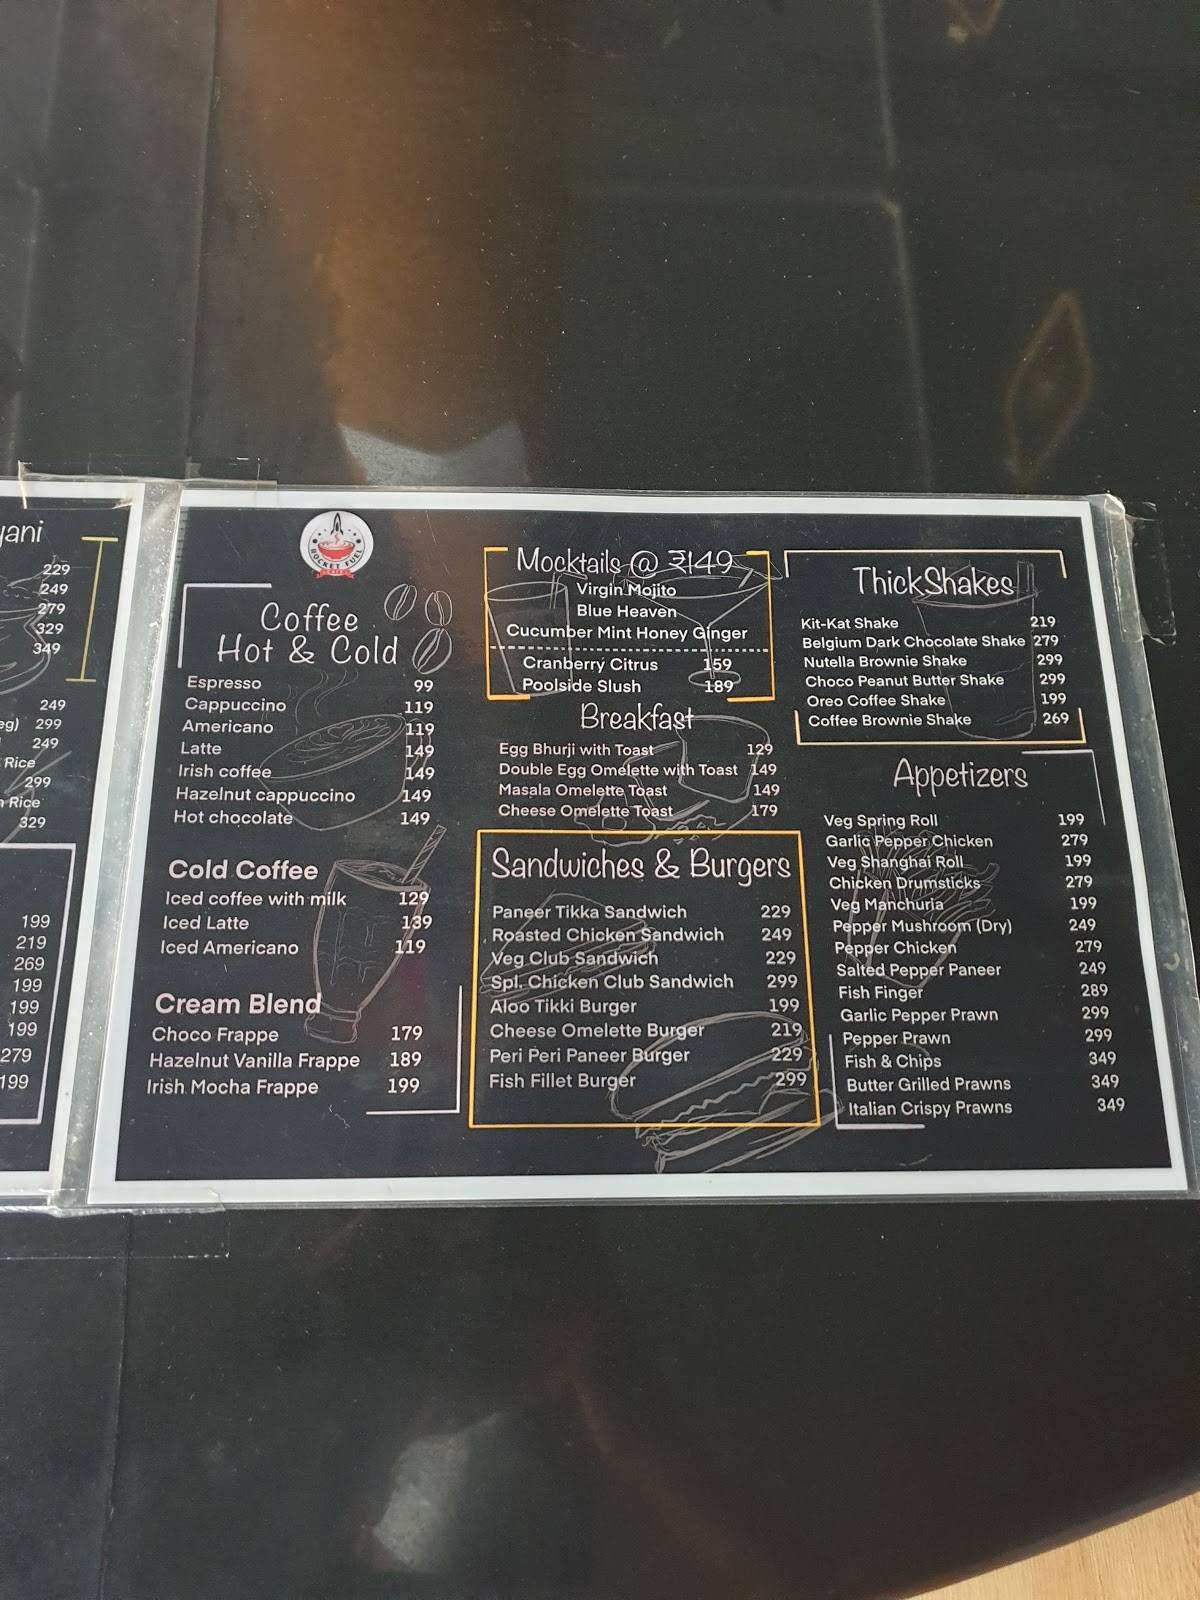 yani
229
249
279
329
349
249
eg) 299
249
Rice
299
Rice
329
199
219
269
199
199
199
279
199
ROCKET FUEL
CAFE
Coffee
Hot & Cold
Espresso 99
Cappuccino 119
Americano 119
Latte 149
Irish coffee 149
Hazelnut cappuccino 149
Hot chocolate 149
Cold Coffee
Iced coffee with milk 129
Iced Latte 139
Iced Americano 119
Cream Blend
Choco Frappe 179
Hazelnut Vanilla Frappe 189
Irish Mocha Frappe 199
Mocktails @ ₹149
Virgin Mojito
Blue Heaven
Cucumber Mint Honey Ginger
Cranberry Citrus 159
Poolside Slush 189
Breakfast
Egg Bhurji with Toast 129
Double Egg Omelette with Toast 149
Masala Omelette Toast 149
Cheese Omelette Toast 179
Sandwiches & Burgers
Paneer Tikka Sandwich 229
Roasted Chicken Sandwich 249
Veg Club Sandwich 229
Spl. Chicken Club Sandwich 299
Aloo Tikki Burger 199
Cheese Omelette Burger 219
Peri Peri Paneer Burger 229
Fish Fillet Burger 299
ThickShakes
Kit-Kat Shake 219
Belgium Dark Chocolate Shake 279
Nutella Brownie Shake 299
Choco Peanut Butter Shake 299
Oreo Coffee Shake 199
Coffee Brownie Shake 269
Appetizers
Veg Spring Roll 199
Garlic Pepper Chicken 279
Veg Shanghai Roll 199
Chicken Drumsticks 279
Veg Manchuria 199
Pepper Mushroom (Dry) 249
Pepper Chicken 279
Salted Pepper Paneer 249
Fish Finger 289
Garlic Pepper Prawn 299
Pepper Prawn 299
Fish & Chips 349
Butter Grilled Prawns 349
Italian Crispy Prawns 349